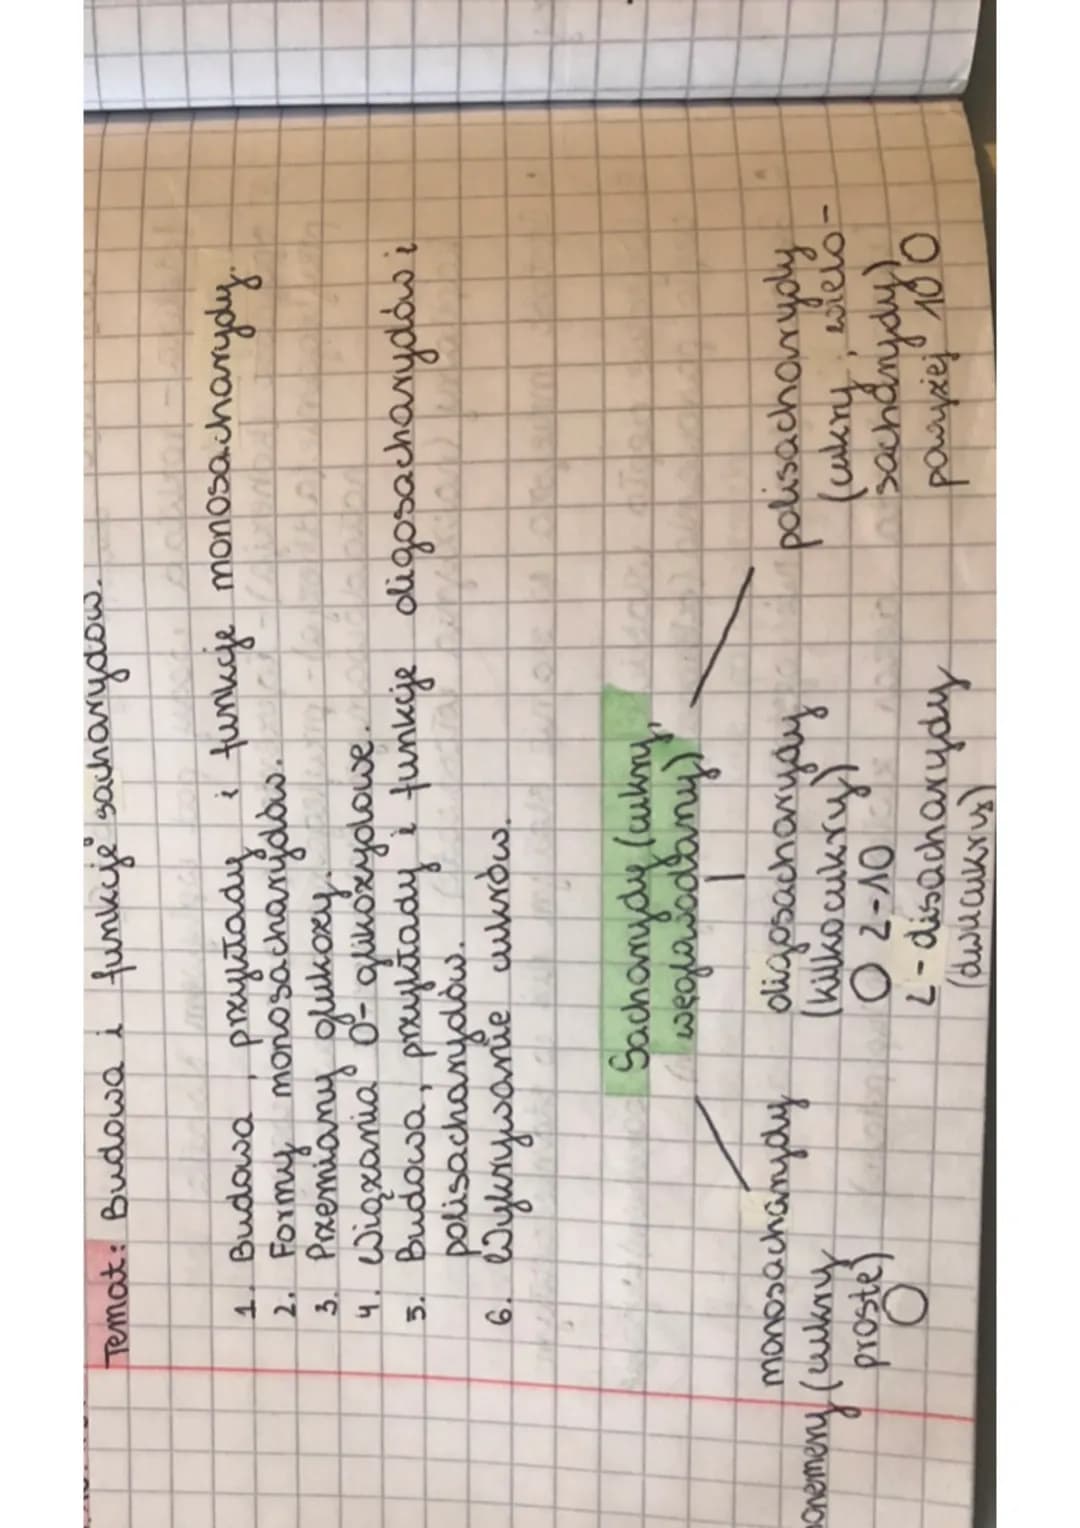 Temat: Budowa i funkcje sacharydów.
1. Budowa, przykłady i funkcje monosacharydy.
2. Formy monosacharydów.
3. Przemiany glukozy.
4. Wiązania O-glikozydowe.
5. Budowa, przykłady i funkcje oligosacharydów i
polisacharydów.
6. Wykrywanie cukrów.
Sacharydy (cukry,
węglowodany)
monosacharydy
(cukry
proste)
oligosacharydy
(kilkocukry)
2-10
2 - disacharydy
(dwucukry)
polisacharydy
(cukry, wielo-
sacharydy)
powyżej 10